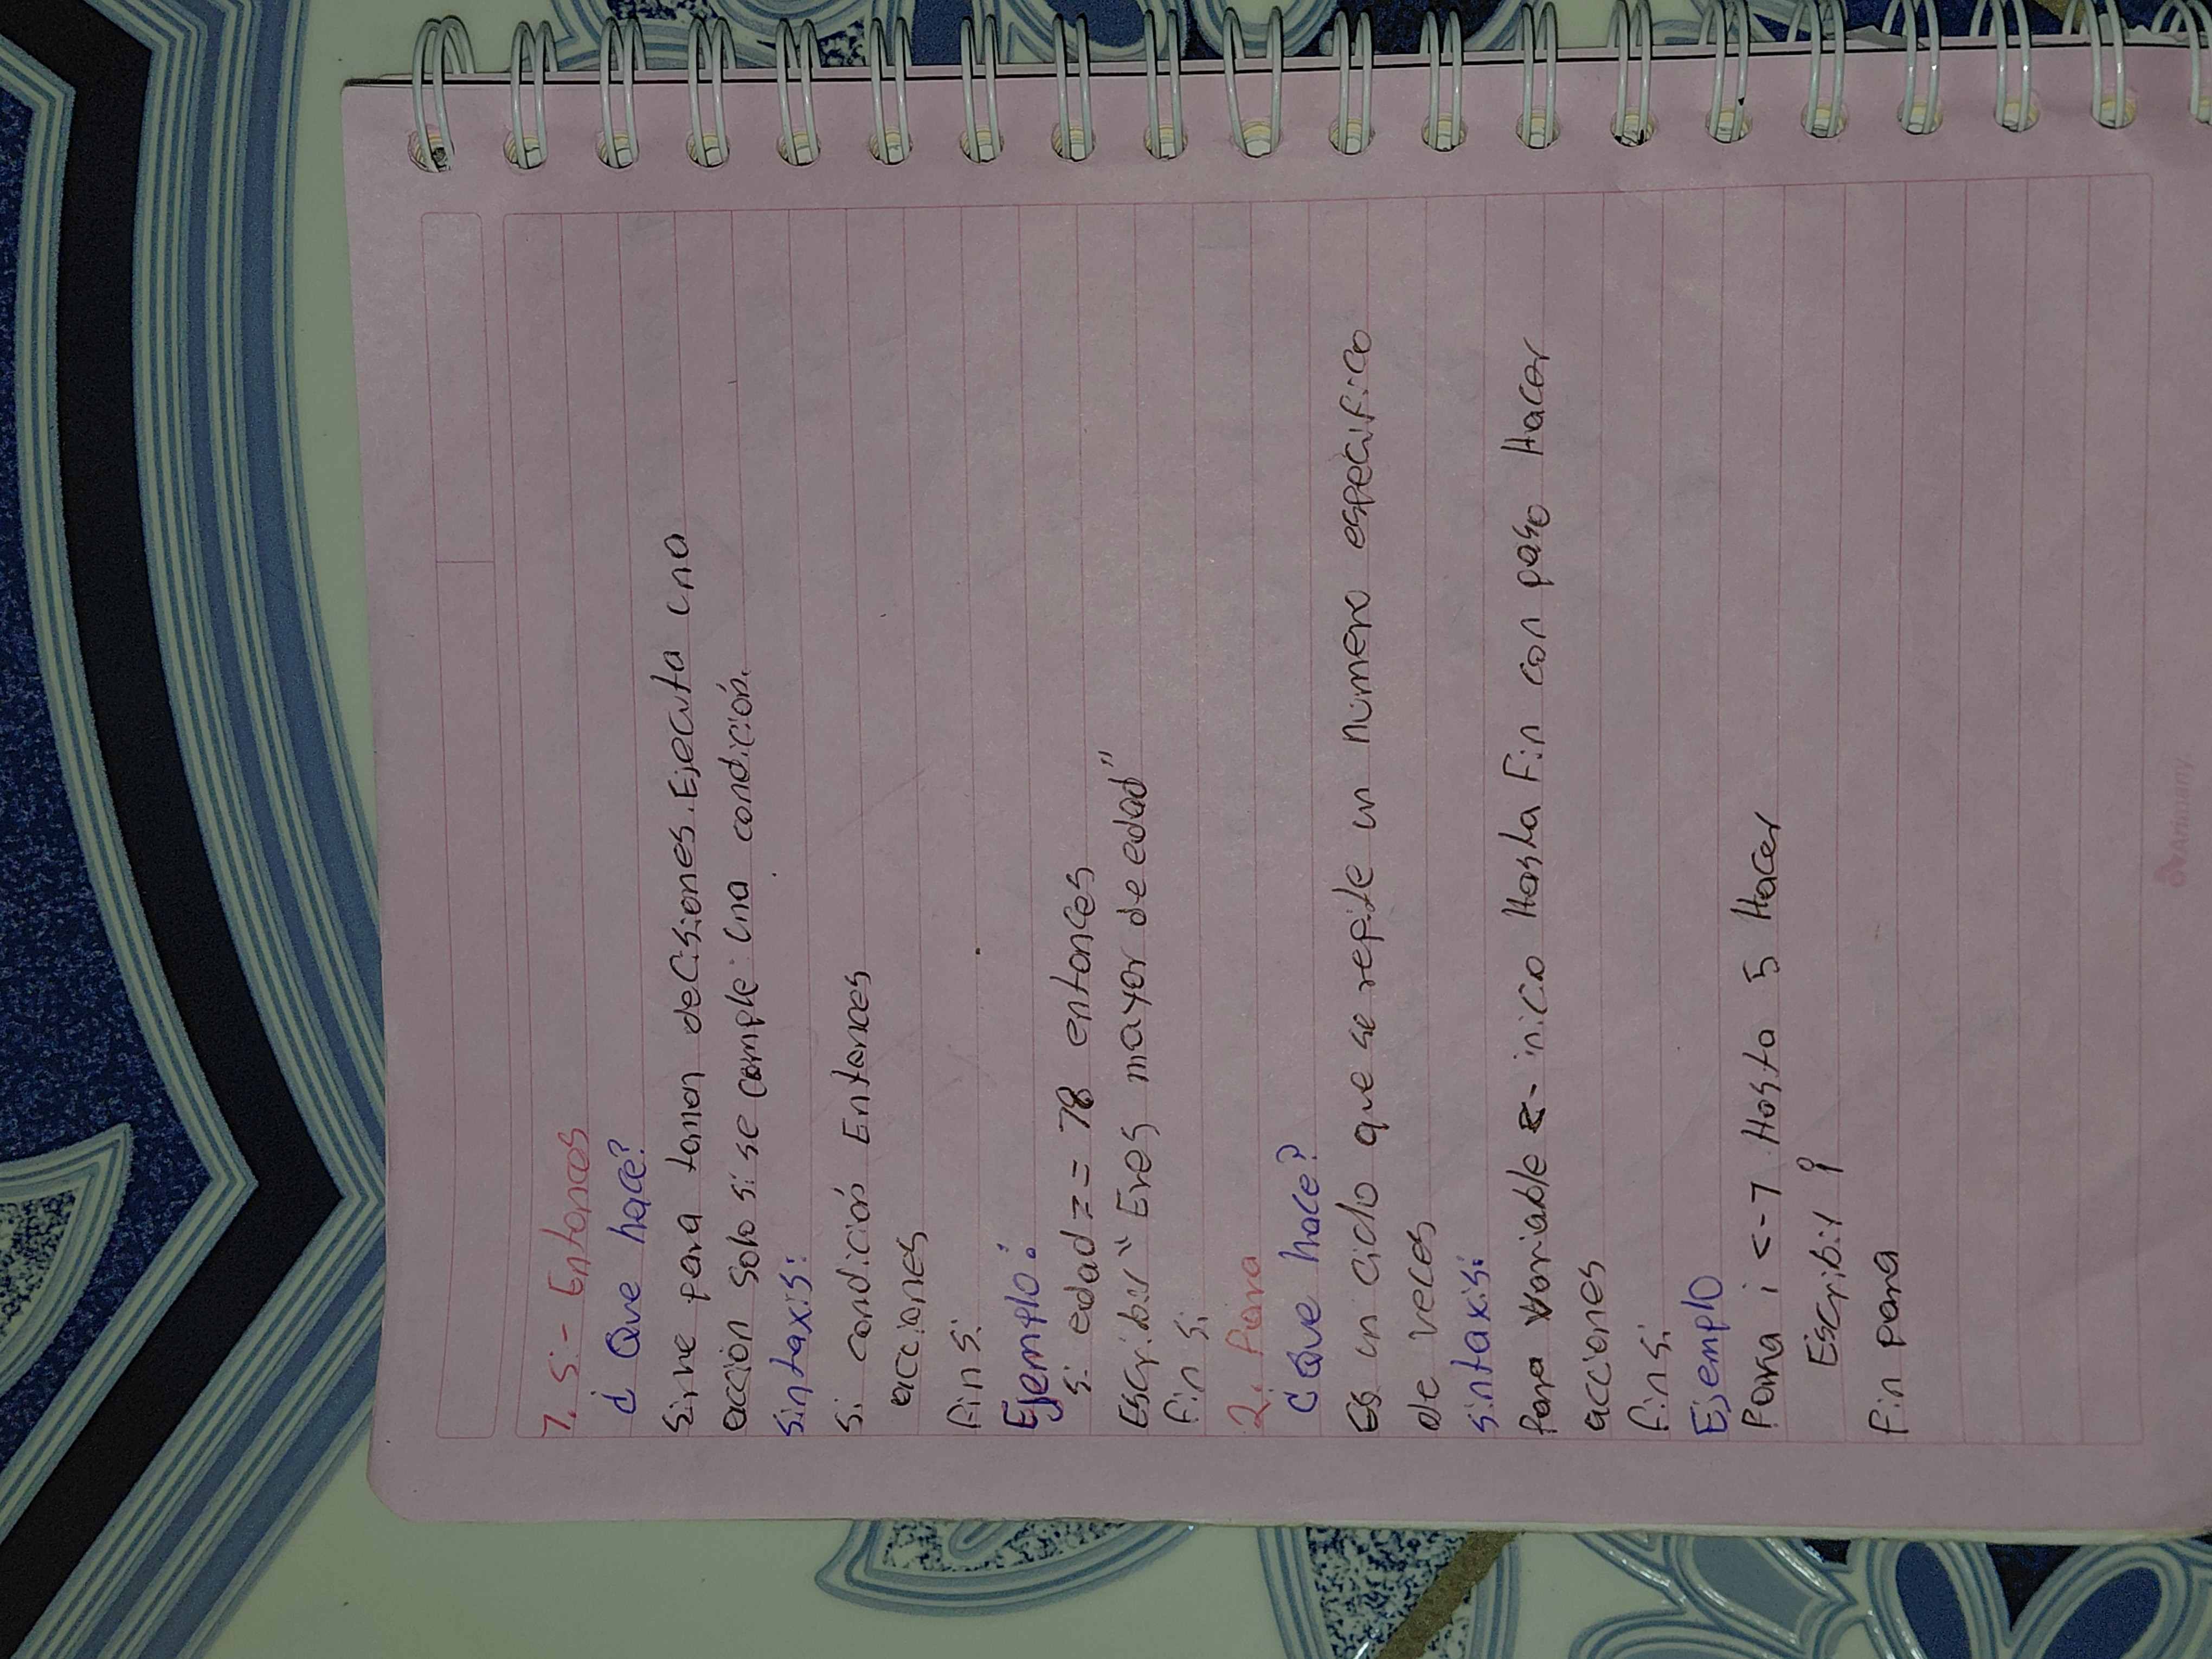 1. Si - Entonces
¿ Que hace?
Sirve para tomar decisiones. Ejecuta una
acción solo si se cumple una condición.
Sintaxis:
Si condición Entonces
acciones
Fin si
Ejemplo:
Si edad == 18 entonces
Escribir " Eres mayor de edad"
Fin si
2. Para
¿Que hace?
Es un ciclo que se repite un número especifico
de veces
Sintaxis:
para variable <- inicio Hasta Fin con paso Hacer
acciones
Fin si
Ejemplo
Para i <- 1 Hasta 5 Hacer
Escribir i
Fin para
Aribamy